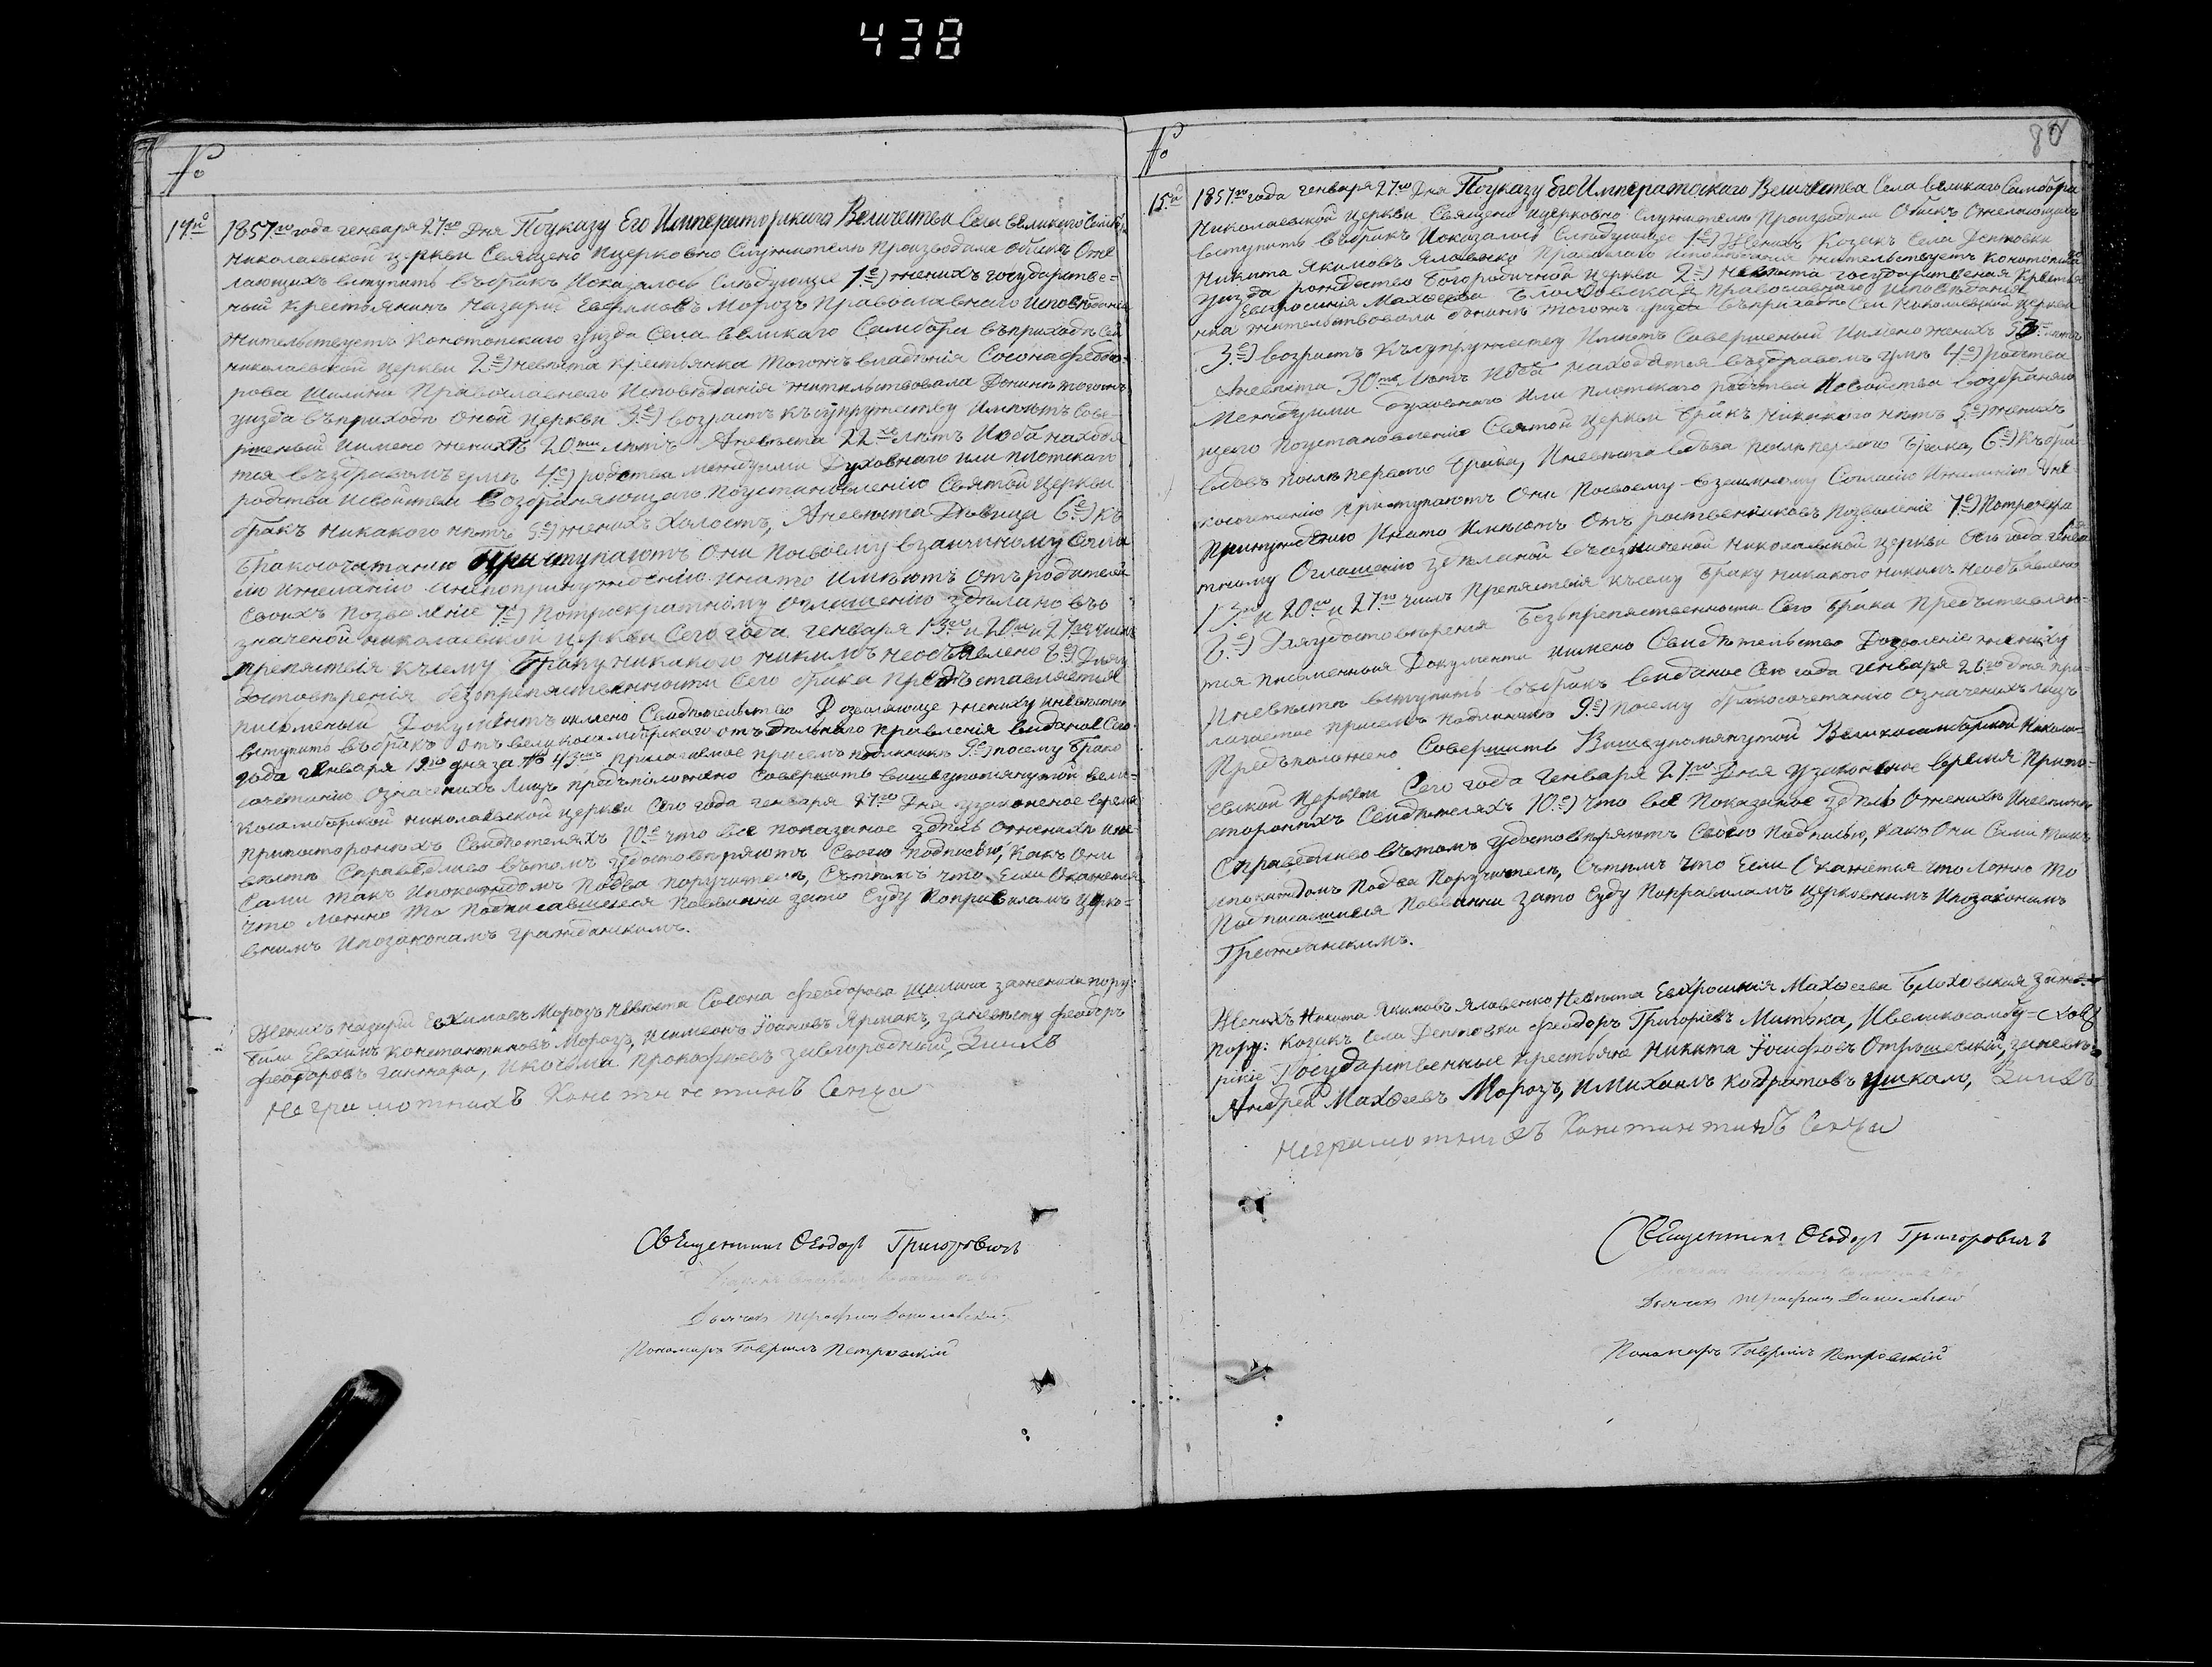 438
№
14й
1857го года генваря 27го Дня Поуказу Его Императорскаго Величества Села Великаго Самбора
николаевской церкви Священо ицерковно Служители Производили обыскъ Оже
лающихъ вступить въбракъ Иоказалось Слѣдующее 1е) женихъ государстве=
ный крестьянинъ Назарий Евфимовъ Морозъ Православнаго Исповѣданія
жительствуетъ Конотопскаго уизда Села Великаго Самбора въприходѣ Сей
николаевской церкви 2е) невѣста крестьянка тогожъ владѣнія Соломонія Феодо=
рова Православнаго Исповѣданія жительствовала Донинѣ тогожъ
уизда въприходѣ Оной церкви 3е) возрастъ къ супружеству Имѣютъ Сове=
ршеный Иимено женихъ 20ти лѣтъ Аневѣста 22хъ лѣтъ Иоба находя
тся въздравомъ умѣ 4е) родства междуими Духовнаго или плотскаго
родства Исвойства Возбраняющаго поустановленію Святой церкви
бракъ никакого нѣтъ 5е) женихъ холостъ, Аневѣста Дѣвица 6е) къ
Бракосочетанію Приступаютъ Они Посвоему взаимному Согла
сію Ижеланію Инепопринужденію инато имѣютъ отъ родителей
Своихъ позволеніе 7е) Потроекратному оглашенію здѣлано въо
значеной николаевской церкви Сего года генваря 13го и 20го и 27го числъ
препятствія къ сему браку никакого никимъ необъявлено 8е) Дляу
достовѣренія безпрепятственности Сего брака предъставляется
писменый Документъ имено Свидѣтельство Дозволяюще жениху иневѣстѣ
вступить въбракъ отъ великосамборскаго отъ сельнаго правленія виданое Сего
года генваря 19го дня за № 43мъ прилагаемое присемъ подлинникѣ 9е) посему брако
сочетаніе Означенихъ Лицъ предъположено Совершить вишеупомянутой вели=
косамборской николаевской церкви Сего года генваря 27го Дня узаконеное время
припостороннихъ Свидѣтеляхъ 10е что все показаное здѣсь Оженихѣ ине=
вѣстѣ Справедливо вътомъ удостовѣряютъ Своею подписью, какъ Они
Сами такъ Ипокаждомъ Подва поручителя, Сътимъ что Если Окажется
что ложно то подписавшиеся повинни зато Суду Поправиламъ церко=
внимъ Ипозаконамъ гражданскимъ.
Женихъ Назарий Евхимовъ Морозъ невѣста Соломонія Феодорова зажениха пору:
били Евхимъ Константиновъ Морозъ, Исимеонъ Іоановъ Ярмакъ, заневѣсту Феодоръ
Феодоровъ ганжара, Икозма Прокофіевъ Завгородный, Занихъ
Неграмотнихъ Константинъ Сенча
Священникъ Феодоръ Григоровичъ
Дьячокъ Трофимъ Даниловский
Пономаръ Гавріилъ Петровский
№
80
15й
1857го года генваря 27го Дня Поуказу Его Императорскаго Величества Села Великаго Самбора
николаевской церкви Священо ицерковно Служители Производили Обыскъ Ожелающихъ
вступить въбракъ Иоказалось Слѣдующее 1е) Женихъ Козакъ Села Дептовки
Никита Якимовъ Яловенко Православнаго Исповѣданія жительствуетъ Конотопскаго
уизда рождество Богородичной церкви 2е) Невѣста государственая Крестья
нка Евфросинія Махвеева Православнаго Исповѣданія
жительствовала донинѣ тогожъ уизда въприходѣ Сей Николаевской церкви
3е) возрастъ Къ супружеству Имѣютъ Совершеный Иимено женихъ 53 лѣтъ
Аневѣста 30ти лѣтъ Иоба находятся въздравомъ умѣ 4е) родства
Междуими Духовнаго Или плотскаго родства Исвойства Возбраняю
щаго Поустановленію Святой церкви бракъ никакого нѣтъ 5е) женихъ
вдовъ послѣ первого брака, Иневѣста вдова послѣ первого брака, 6е) Къбра
косочетанію приступаютъ Они Посвоему взаимному Согласію Ижеланію Ине
Принужденію Инато имѣютъ Отъ родственниковъ Позволеніе 7е) Потроекра
тному Оглашенію здѣланой въозначеной николаевской церкви Сего года Генва
13го и 20го и 27го числъ Препятствія къ сему браку никакого никимъ необъявлено
8е) Дляудостовѣренія безъпрепятственности Сего брака Предъставляю=
тся писменныя Документи имено Свидѣтельство Дозволеніе жениху
Иневѣстѣ вступить въбракъ виданое Сего года генваря 26го дня при=
лагаемое присемъ подлинникѣ 9е) посему бракосочетаніе Означенихъ лицъ
Предъположено Совершить Вишеупомянутой Великосамборской Никола=
евской церкви Сего года генваря 27го Дня узаконеное время Припо=
сторонихъ Свидѣтеляхъ 10е) что все Показаное здѣсь Оженихѣ Иневѣстѣ
Справедливо вътомъ удостовѣряютъ Своею Подписью, Какъ Они Сами такъ
ипокаждомъ Подва Поручителя, Сътимъ что Если Окажется что ложно то
Подписавшиеся Повинни зато Суду Поправиламъ церковнимъ Ипозаконамъ
Гражданскимъ.
Женихъ Никита Якимовъ Яловенко Невѣста Евхросинія Махвеева заже=
пору: Козакъ Села Дептовки Феодоръ Григоріевъ Митька, Ивеликосамбу=
рскіе Государственные крестьяне Никита Іосифовъ заневѣ=
Андрей Махвеевъ Морозъ, ИМихаилъ Кодратовъ ушкало, Занихъ
неграмотнихъ Константинъ Сенча
Священникъ Феодоръ Григоровичъ
Дьячокъ Трофимъ Даниловский
Пономаръ Гавріилъ Петровский